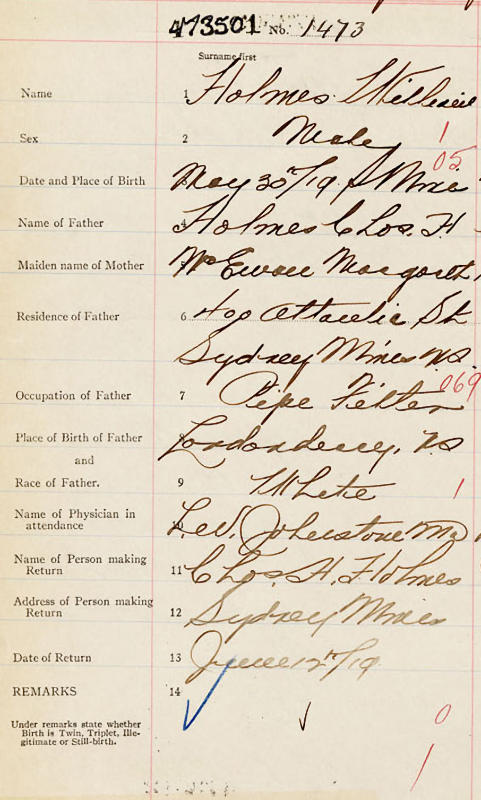 473501 No. 1473
Surname first
Name 1 Holmes William
Sex 2 Male 1
05
Date and Place of Birth May 30th/19, S Mines
Name of Father 4 Holmes Chos. H
Maiden name of Mother McEwan Margaret
Residence of Father 6 Atlantic St
Sydney Mines N.S.
069
Occupation of Father 7 Pipe Fitter
Place of Birth of Father Londonderry, NS
and
Race of Father. 9 White 1
Name of Physician in
attendance 10 L.W. Johnstone MD
Name of Person making
Return 11 Chos. H. Holmes
Address of Person making
Return 12 Sydney Mines
Date of Return 13 June 12th/19
REMARKS 14
Under remarks state whether
Birth is Twin, Triplet, Ille-
gitimate or Still-birth.
0
1